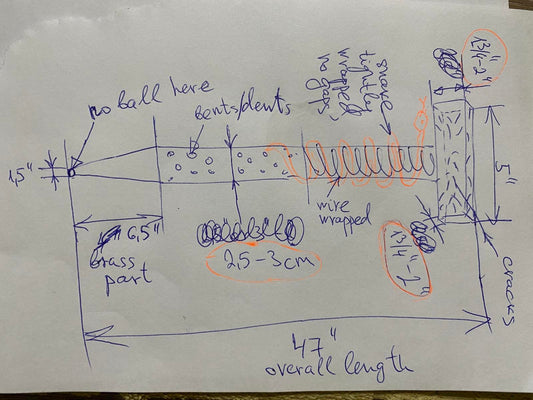 1 3/4-2"
no ball here
bents/dents
snare
tightly
wrapped,
no gaps
1,5"
5"
wire
wrapped
6,5"
brass
part
2,5-3cm
1 3/4-2"
cracks
47"
overall length